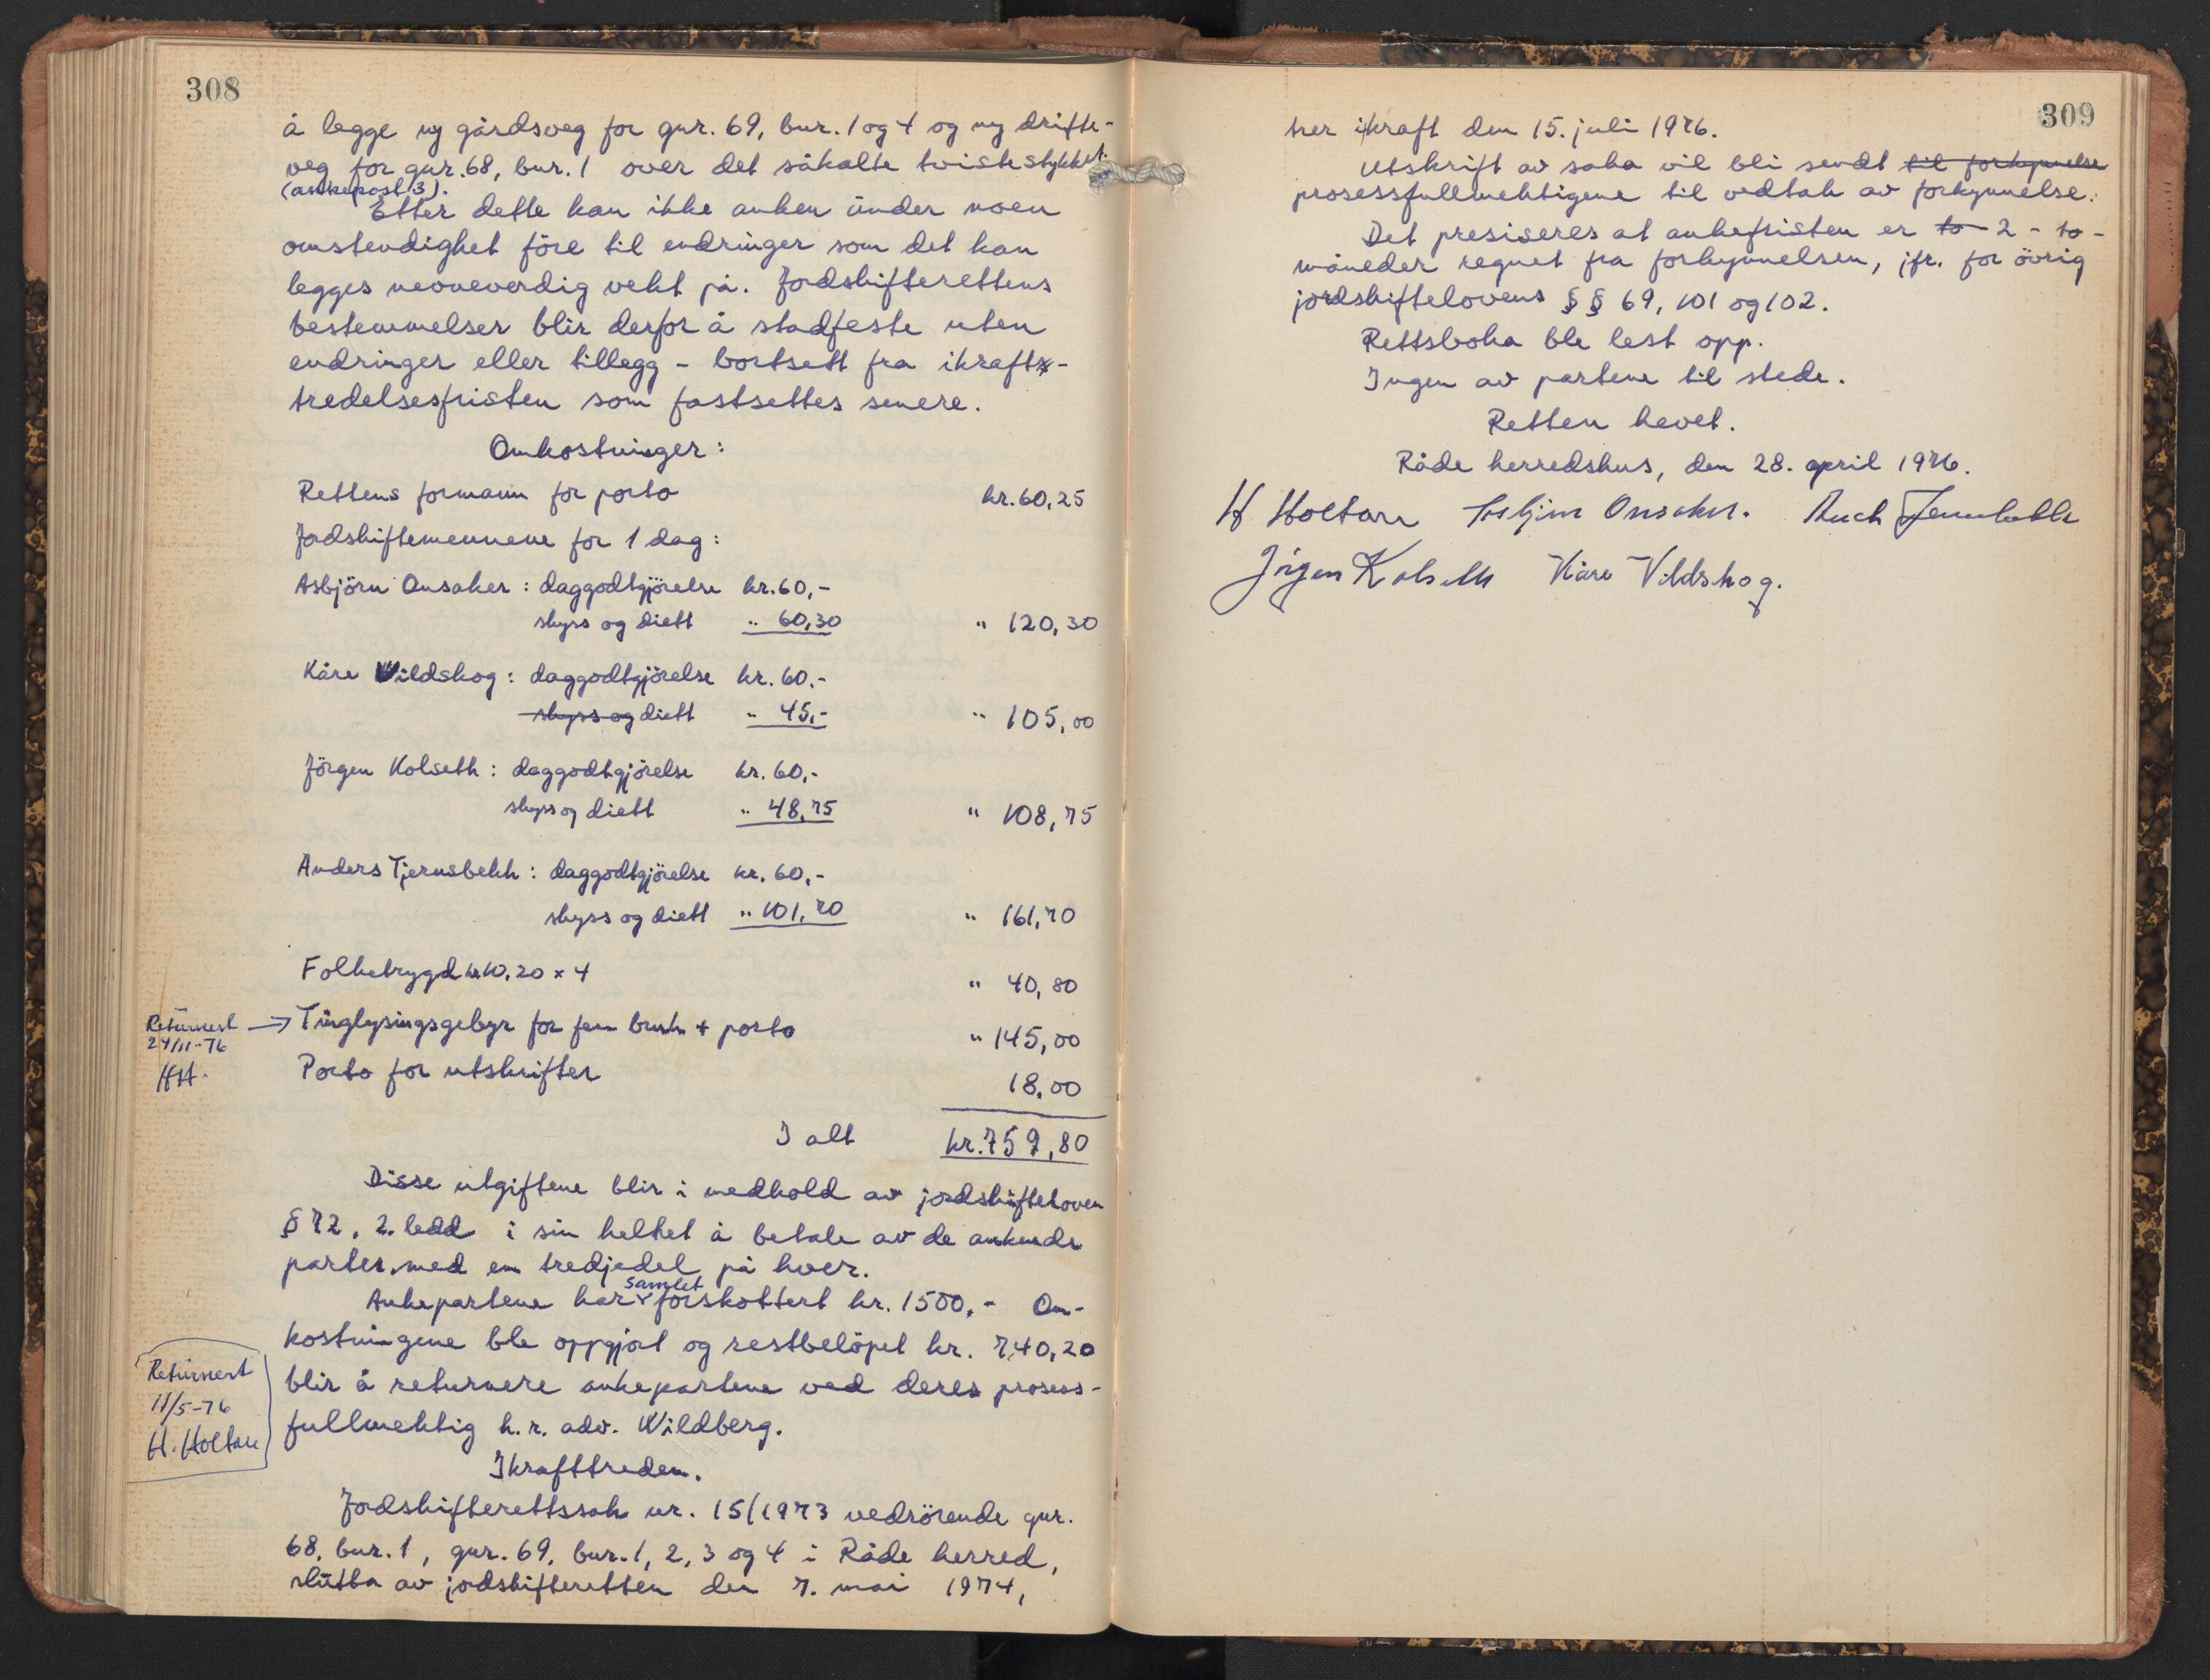 308
å legge ny gårdsveg for gnr. 69, bnr. 1 og 4 og ny drifte-
veg for gnr. 68, bnr. 1 over det såkalte tvistestykket
(ankepost 3).
Etter dette kan ikke anken under noen
omstendighet føre til endringer som det kan
legges nevneverdig vekt på. Jordskifterettens
bestemmelser blir derfor å stadfeste uten
endringer eller tillegg - bortsett fra ikraft-
tredelsesfristen som fastsettes senere.
Omkostninger:
Rettens formann for porto kr. 60,25
Jordskiftemennene for 1 dag:
Asbjörn Onsaker: daggodtgjörelse kr. 60,-
skyss og diett " 60,30 " 120,30
Kåre Vildskog: daggodtgjörelse kr. 60.-
skyss og diett " 45,- " 105,00
Jörgen Kolseth: daggodtgjörelse kr. 60,-
skyss og diett " 48,75 " 108,75
Anders Tjernsbekk: daggodtgjörelse kr. 60,-
skyss og diett " 101,70 " 161,70
Folketrygd kr 10,20 x 4 " 40,80
Returnert → Tinglysingsgebyr for fem bruk + porto " 145,00
24/11-76
HH.
Porto for utskrifter 18,00
I alt kr. 759,80
Disse utgiftene blir i medhold av jordskifteloven
§ 72, 2. ledd i sin helhet å betale av de ankende
parter med en tredjedel på hver.
samlet
Ankepartene har forskottert kr. 1500,- Om-
kostningene ble oppgjort og restbelöpet kr. 740,20
blir å returnere ankepartene ved deres prosess-
fullmektig h.r. adv. Wildberg.
Returnert
11/5-76
H. Holtan
Ikrafttreden.
Jordskifterettssak nr. 15/1973 vedrörende gnr.
68, bnr. 1, gnr. 69, bnr. 1, 2, 3 og 4 i Råde herred,
slutta av jordskifteretten den 7. mai 1974,
309
trer i kraft den 15. juli 1976.
Utskrift av saka vil bli sendt til forkynnelse
prosessfullmektigene til vedtak av forkynnelse.
Det presiseres at ankefristen er to - 2 - to -
måneder regnet fra forkynnelsen, jfr. for övrig
jordskiftelovens §§ 69, 101 og 102.
Rettsboka ble lest opp.
Ingen av partene til stede.
Retten hevet.
Råde herredshus, den 28. april 1976.
H Holtan Asbjörn Onsaker.
Jörgen Kolseth Kåre Vildskog.